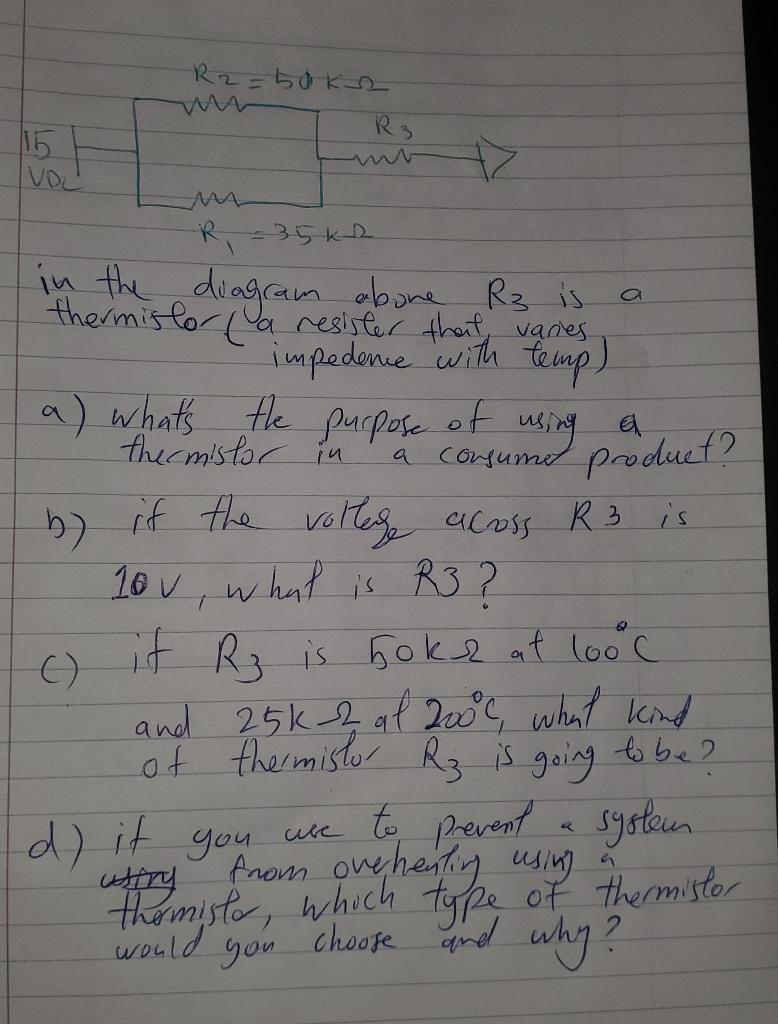 R2 = 50 KΩ
15
VDC
R3
R1 = 35 kΩ
in the diagram above R3 is a
thermistor (a resister that varies
impedence with temp)
a) what's the purpose of using a
thermistor in a consumer product?
b) if the voltage across R3 is
10v, what is R3?
c) if R3 is 50kΩ at 100°C
and 25kΩ at 200°C, what kind
of thermistor R3 is going to be?
d) if you are to prevent a system
from overheating using a
thermistor, which type of thermistor
would you choose and why?